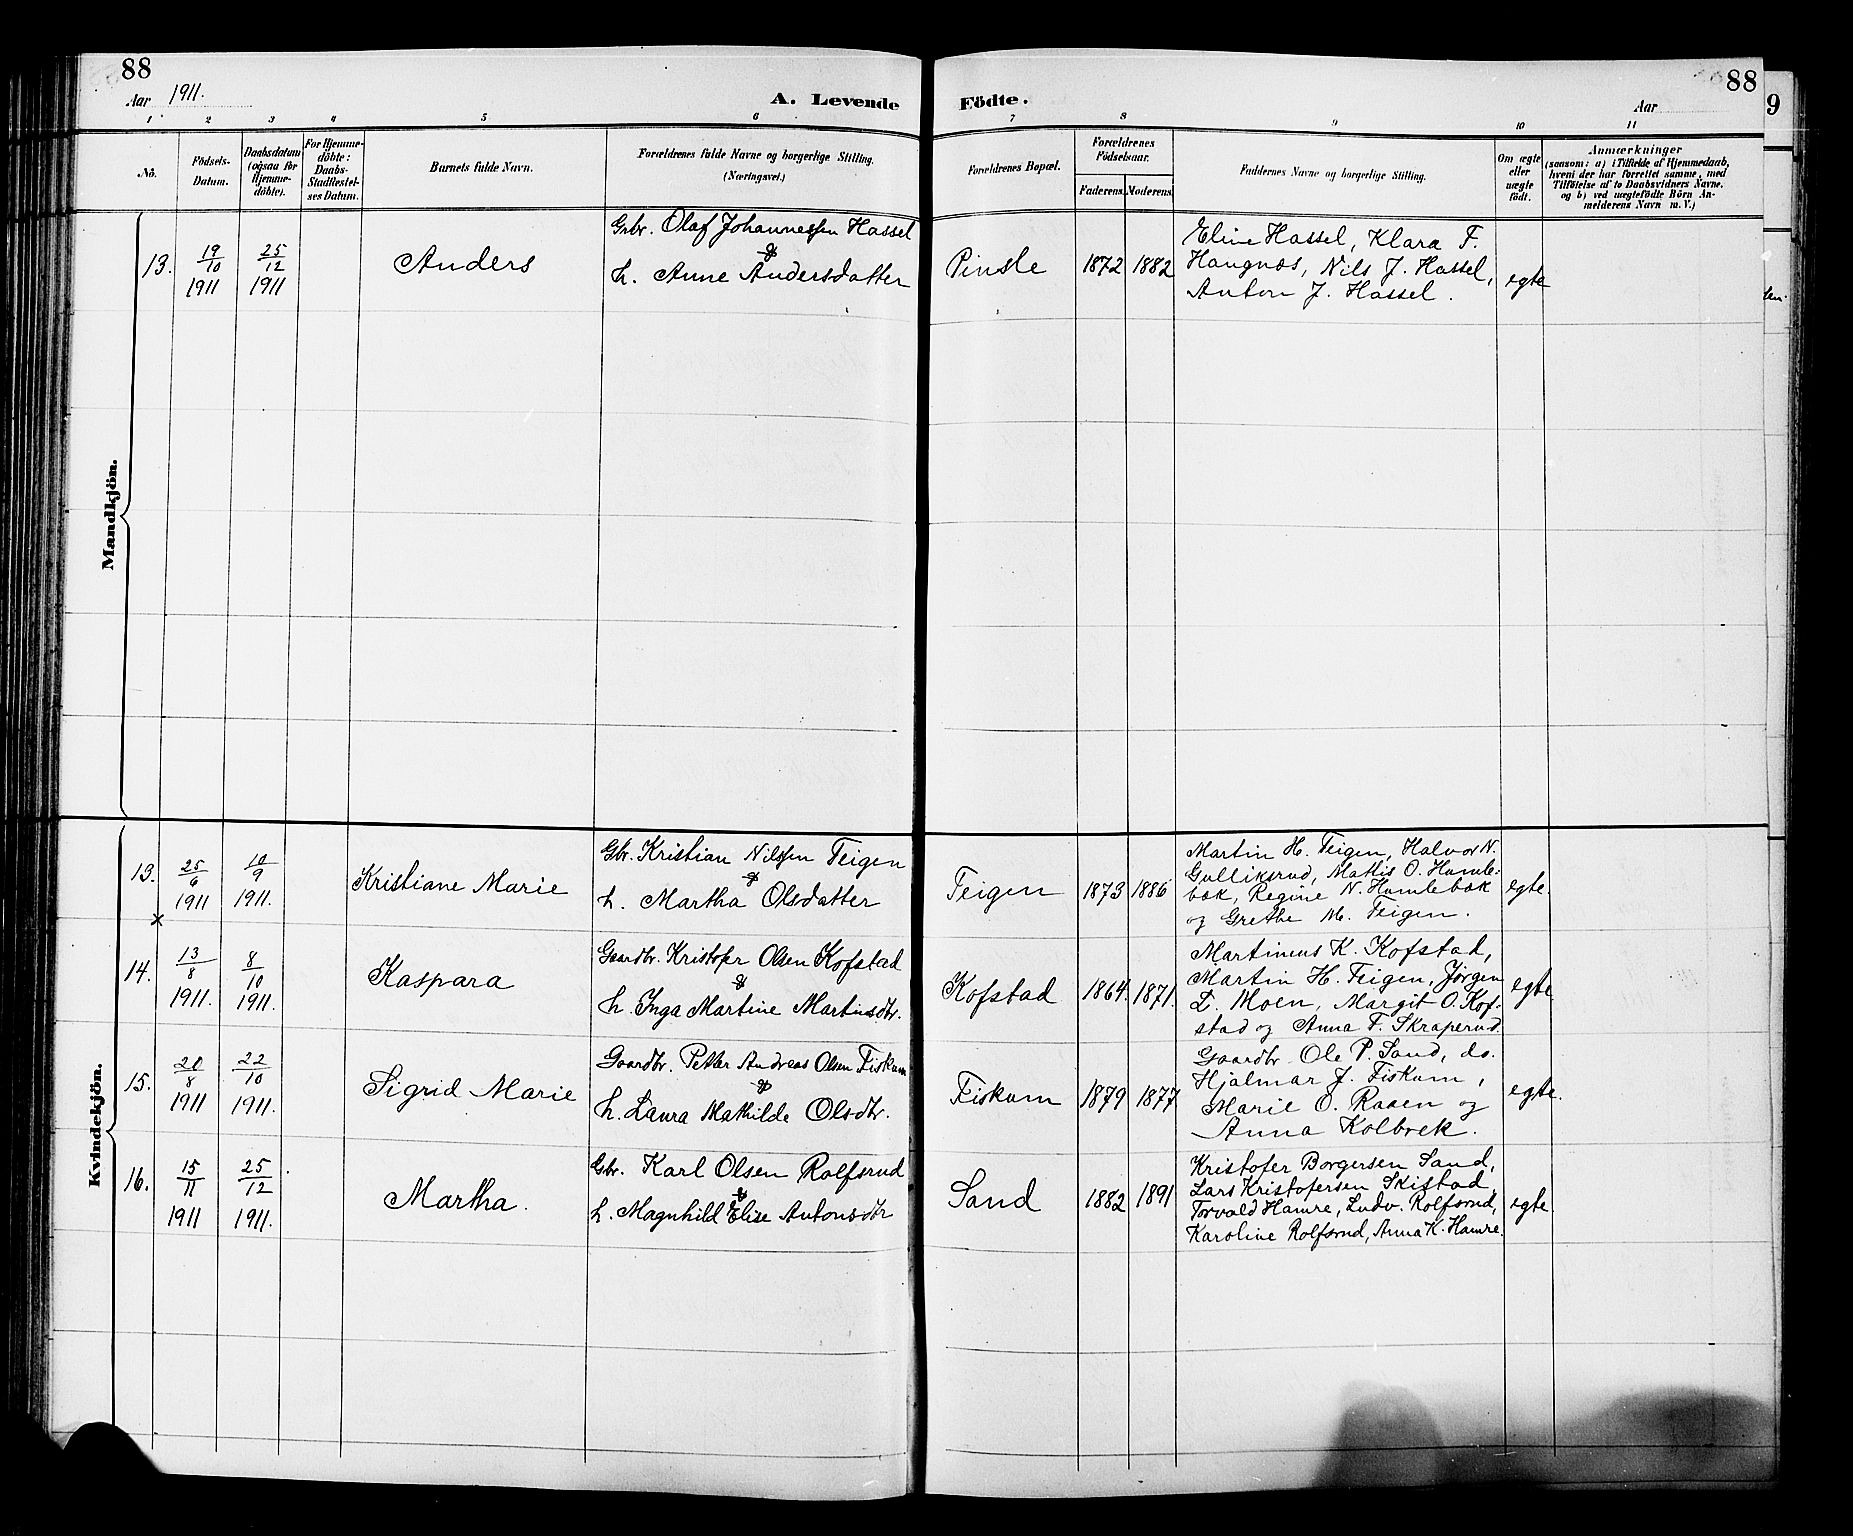 88
88
Aar 1911.
A. Levende
Födte.
Aar
9
1
2
3
4
5
6
7
8
9
10
11
Nō.
Födsels-
Datum.
Daabsdatum
(ogsaa for
Hjemme-
döbte).
For Hjemme-
döbte:
Daabs-
Stadfæstel-
ses Datum.
Barnets fulde Navn.
Forældrenes fulde Navne og borgerlige Stilling.
(Næringsvei.)
Forældrenes Bopæl.
Forældrenes
Födselsaar.
Faderens.
Moderens.
Faddernes Navne og borgerlige Stilling.
Om ægte
eller
uægte
födt.
Anmærkninger
(saasom: a) i Tilfælde af Hjemmedaab,
hvem der har forrettet samme, med
Tilföielse af to Daabsvidners Navne,
og b) ved uægtefödte Börn An-
melderens Navn m. V.)
Mandkjön.
13.
19/10
1911
25/12
1911
Anders
Gbr. Olaf Johannessen Hassel
&
h. Anne Andersdatter
Pinsle
1872
1882
Eline Hassel, Klara F.
Haugnæs, Nils J. Hassel,
Anton J. Hassel.
egte
Kvindekjön.
13.
25/6
1911
10/9
1911.
Kristiane Marie
Gbr. Kristian Nilssen Teigen
&
h. Martha Olsdatter
Teigen
1873
1886
Martin H. Teigen, Halvor N.
Gulliksrud, Mathis O. Humle-
bæk, Regine N. Humlebæk
og Grethe M. Teigen.
egte.
×
14.
13/8
1911.
8/10
1911.
Kaspara
Gaardbr. Kristofer Olsen Kofstad
&
h. Inga Martine Martinsdtr.
Kofstad
1864.
1871.
Martinius K. Kofstad,
Martin H. Teigen, Jørgen
L. Moen, Margit O. Kof-
stad og Anna F. Skraperud.
egte
15.
20/8
1911
22/10
1911.
Sigrid Marie
Gaardbr. Petter Andreas Olsen Fiskum
&
h. Laura Mathilde Olsdtr.
Fiskum
1879
1877
Gaardbr Ole P. Sand, do.
Hjalmar J. Fiskum,
Marie O. Raaen og
Anna Kolbrek.
egte.
16.
15/11
1911
25/12
1911.
Martha.
Gbr. Karl Olsen Rolfsrud
&
h. Magnhild Elise Antonsdtr
Sand
1882
1891
Kristofer Borgersen Sand,
Lars Kristofersen Skistad
Torvald Hamre, Ludv. Rolfsrud,
Karoline Rolfsrud, Anna K. Hamre.
egte